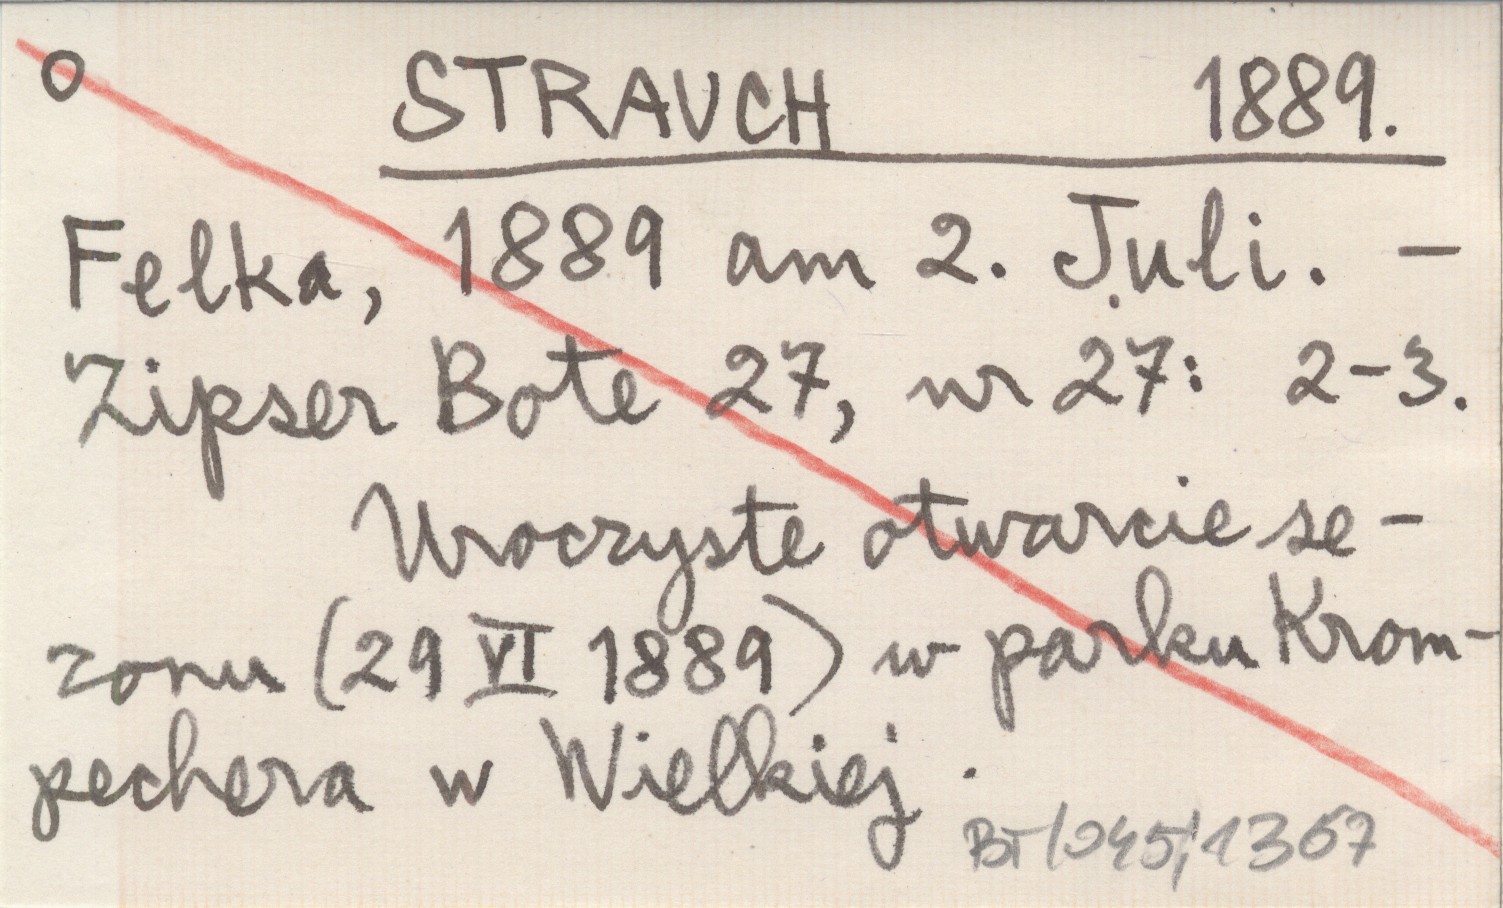 o STRAUCH 1889.
Felka, 1889 am 2. Juli. –
Zipser Bote 27, nr 27: 2-3.
Uroczyste otwarcie se-
zonu (29 VI 1889) w parku Krom-
pechera w Wielkiej.
BT/045/1367